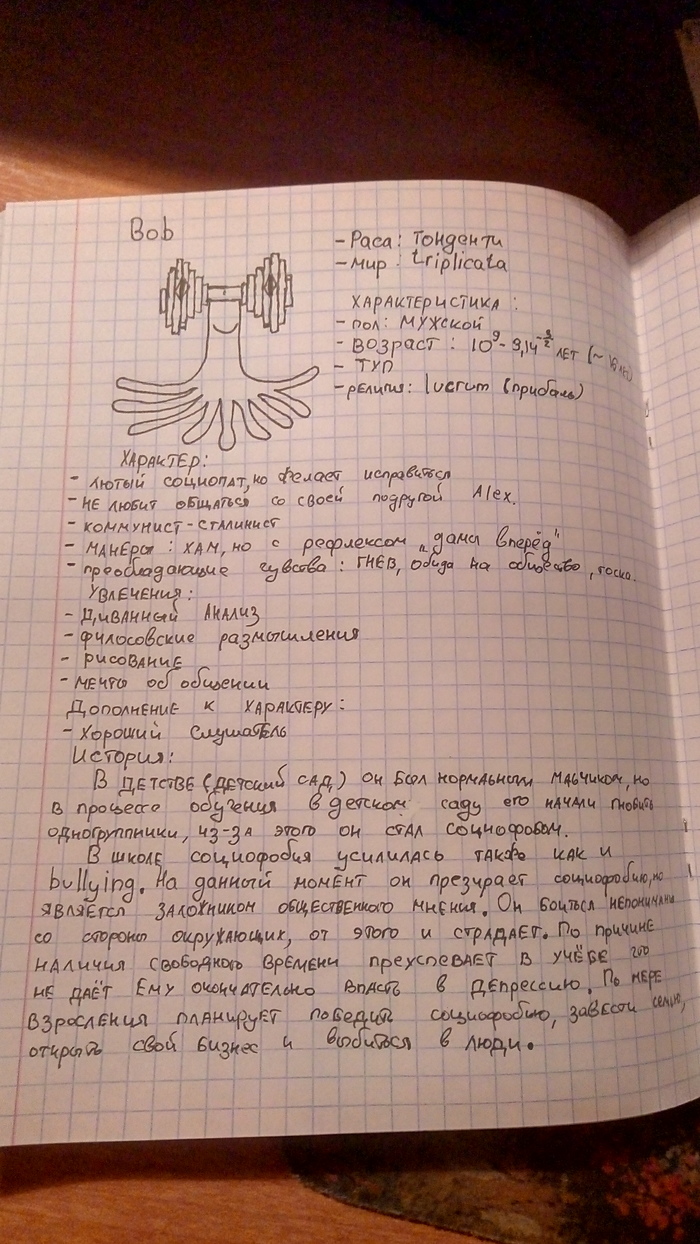 Bob
- Раса: Тонденти
- Мир: triplicata
ХАРАКТЕРИСТИКА:
- пол: МУЖСКОЙ
- ВОЗРАСТ: 10⁹ - 9,14 ЛЕТ (~ лет)
- ТУП
- религия: lucrum (прибыль)
ХАРАКТЕР:
- лютый социопат, но желает исправиться
- НЕ любит общаться со своей подругой Alex.
- коммунист-сталинист
- МАНЕРЫ: ХАМ, но с рефлексом "дамы вперёд"
- преобладающие чувства: ГНЕВ, обида на общество, тоска.
УВЛЕЧЕНИЯ:
- Диванный АНАЛИЗ
- филосовские размышления
- РИСОВАНИЕ
- МЕЧТЫ об общении
Дополнение к ХАРАКТЕРУ:
- Хороший слушатель
История:
В ДЕТСТВЕ (ДЕТСКИЙ САД) он был нормальным мальчиком, но
в процессе обучения в детском саду его начали гнобить
одногруппники, из-за этого он стал социофобом.
В школе социофобия усилилась также как и
bullying. На данный момент он презирает социофобию, но
является заложником общественного мнения. Он боиться непонимания
со стороны окружающих, от этого и страдает. По причине
наличия свободного времени преуспевает в учёбе что
не даёт ему окончательно впасть в депрессию. По мере
взросления планирует победить социофобию, завести семью,
открыть свой бизнес и выбиться в люди.